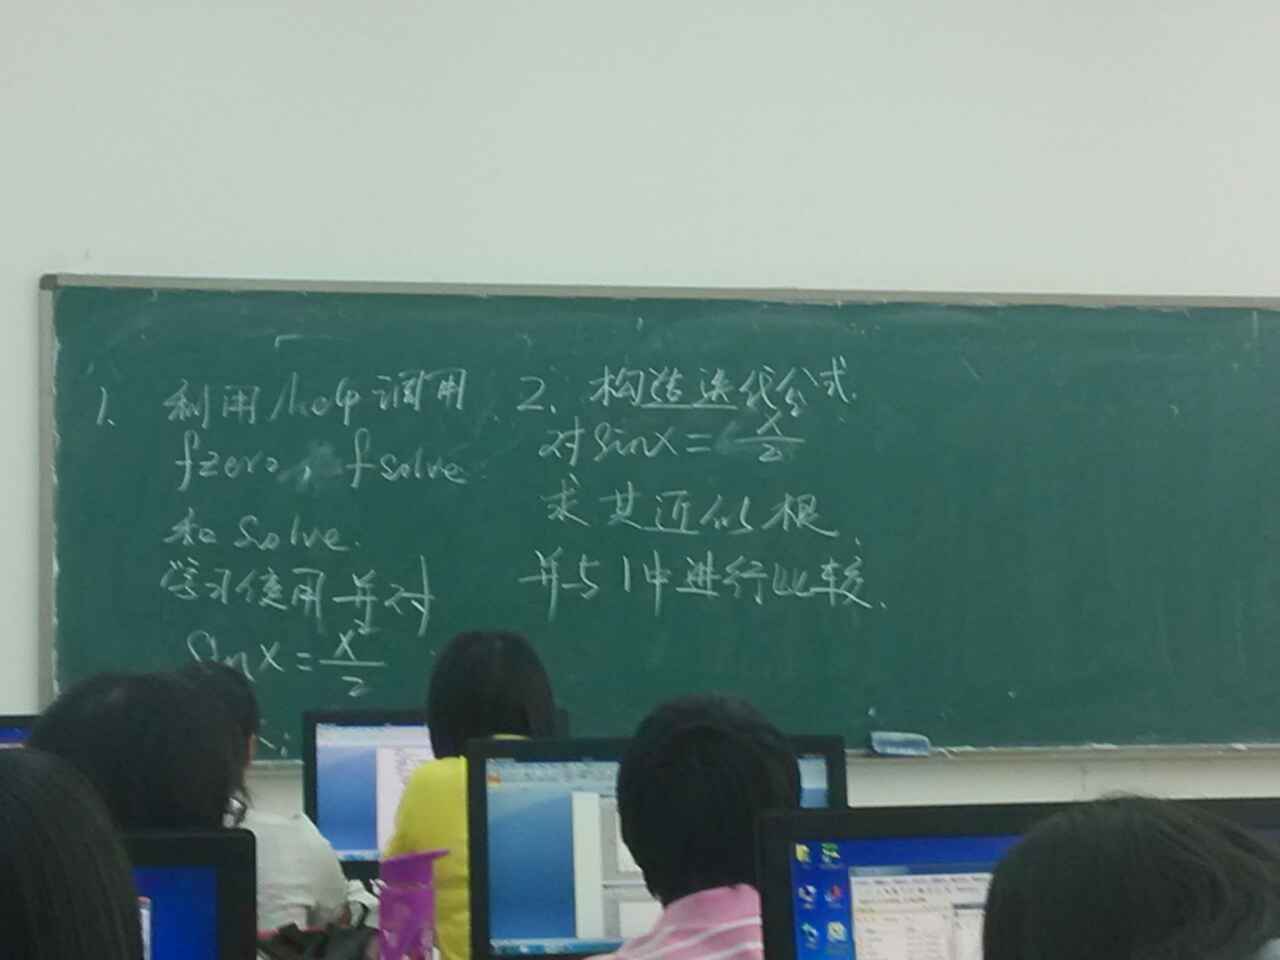 1. 利用help调用
fzero, fsolve
和 Solve.
学习使用并对
Sinx = x²/2
2. 构造迭代公式.
对 Sinx = x/2
求其近似根.
并与1中进行比较.